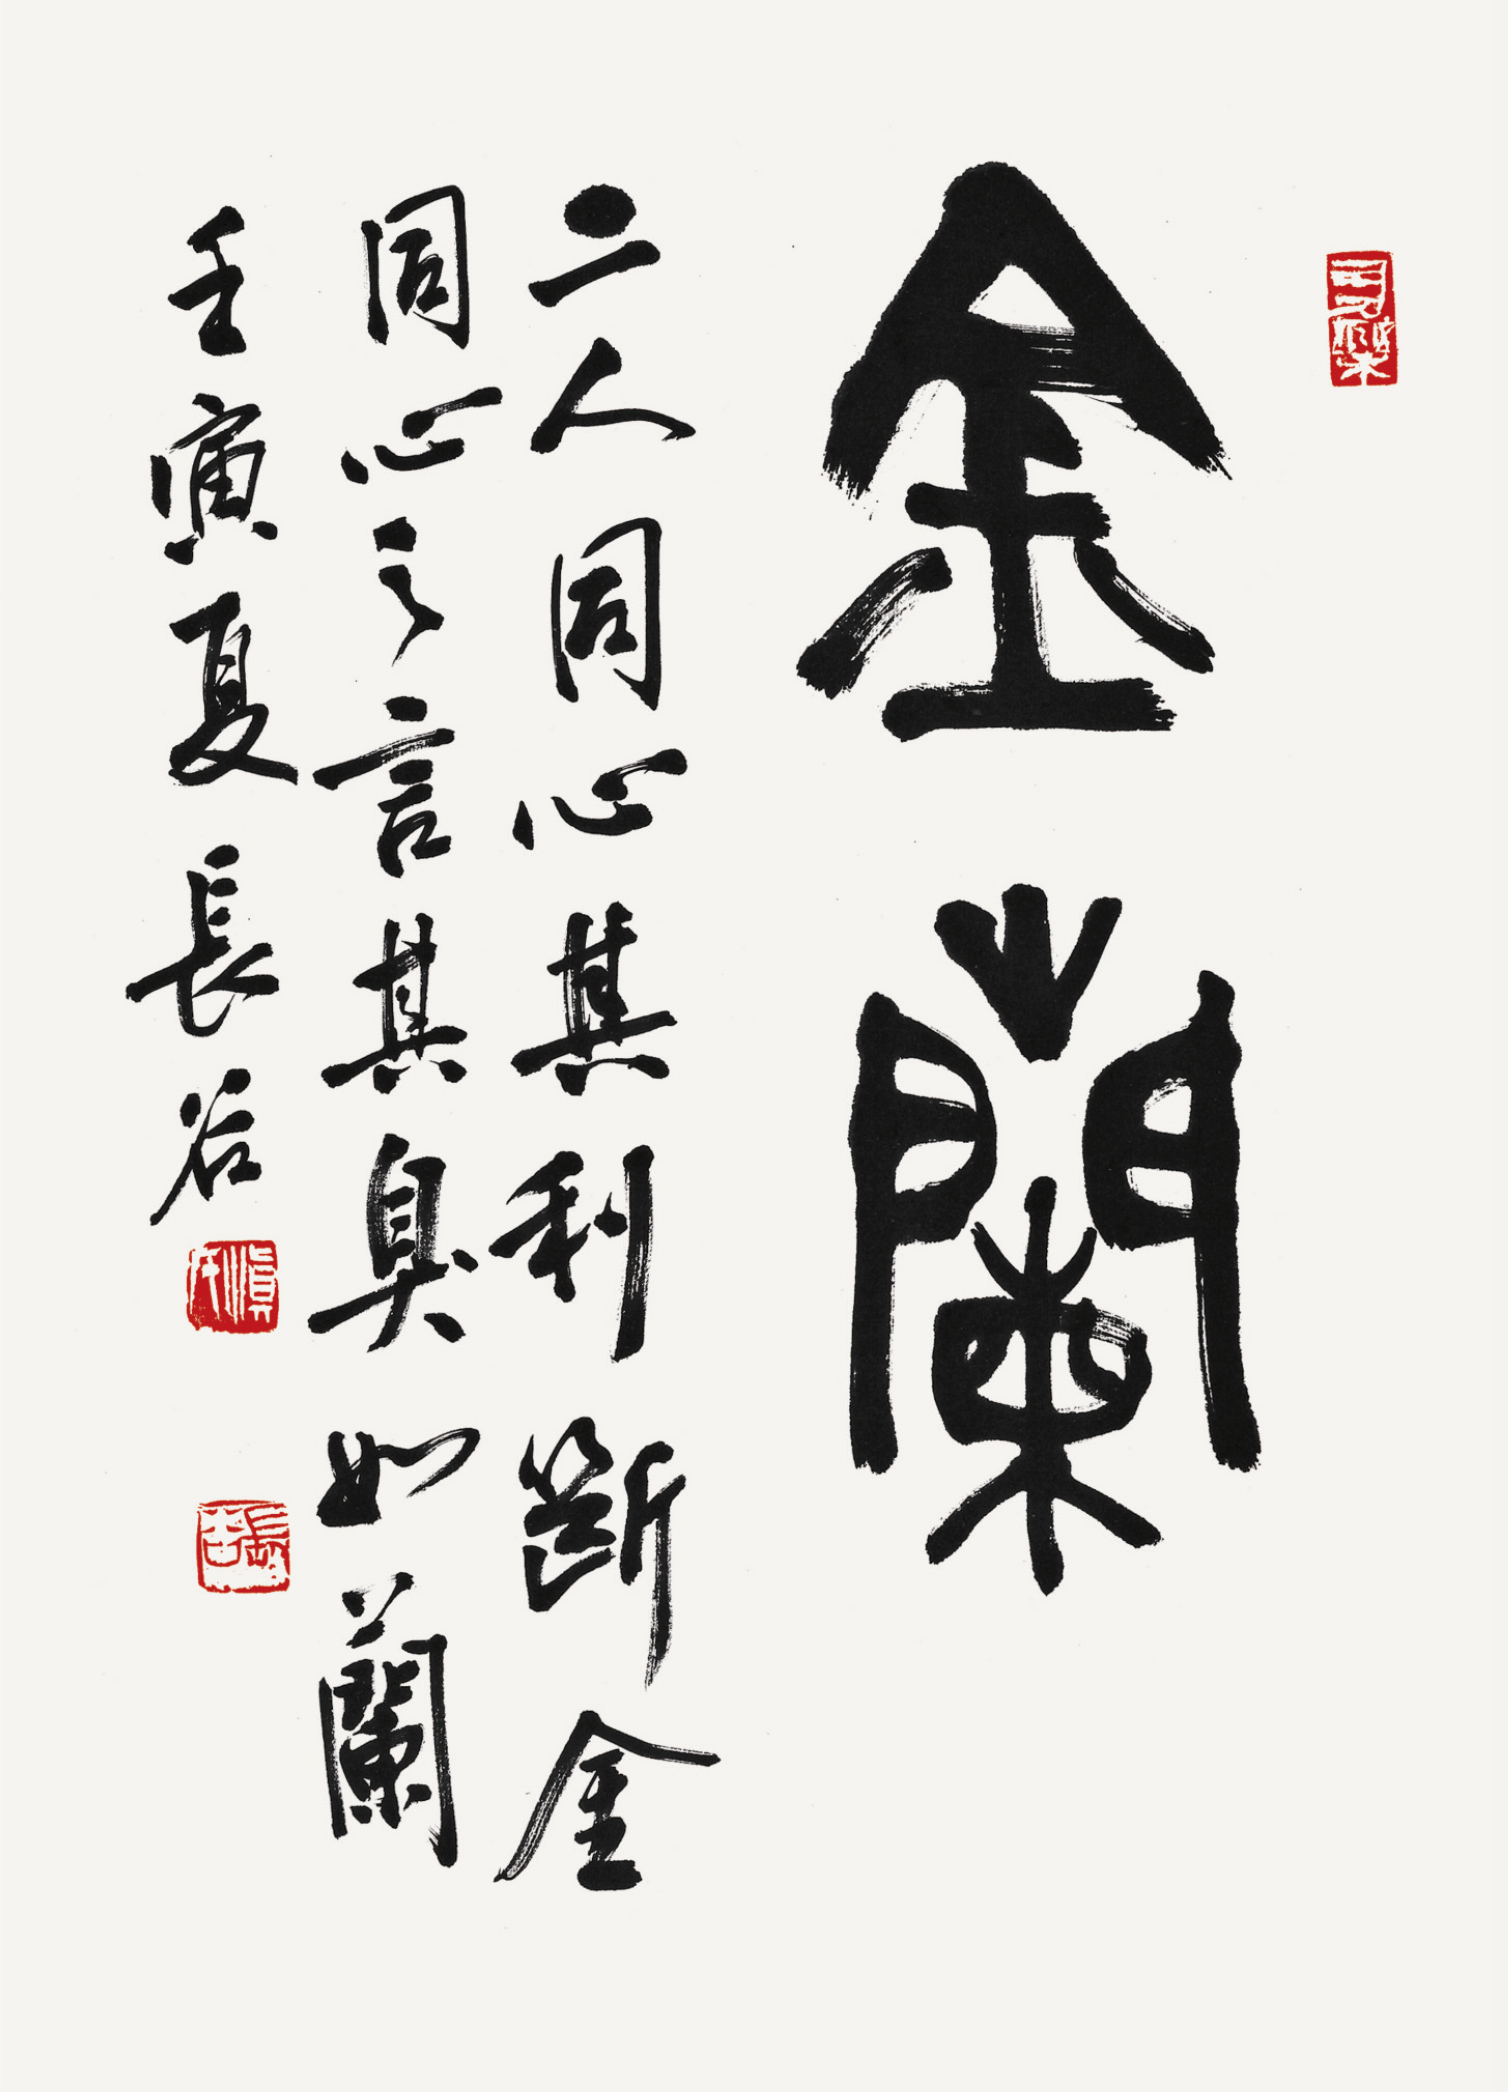 金蘭
二人同心其利斷金
同心之言其臭如蘭
壬寅夏長谷